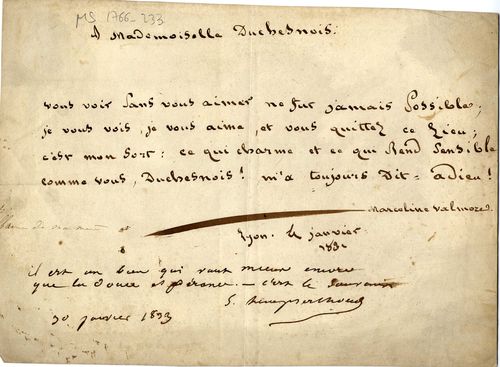 MS 1766-233
A Mademoiselle Duchesnois.
vous voir sans vous aimer ne fut jamais possible;
je vous vois, je vous aime, et vous quittez ce lieu;
c'est mon sort: ce qui charme et ce qui rend sensible
comme vous, Duchesnois! m'a toujours dit = adieu!
Marceline Valmore.
Lyon. le janvier
il est un bien qui vaut mieux encore
que la douce espérance. — c'est le souvenir
30 janvier 1833